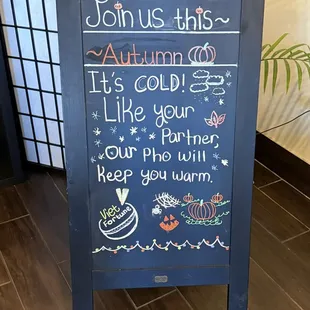 Join us this~
~Autumn
It's COLD!
Like your
Partner,
Our Pho will
keep you warm.
Viet
Fortune